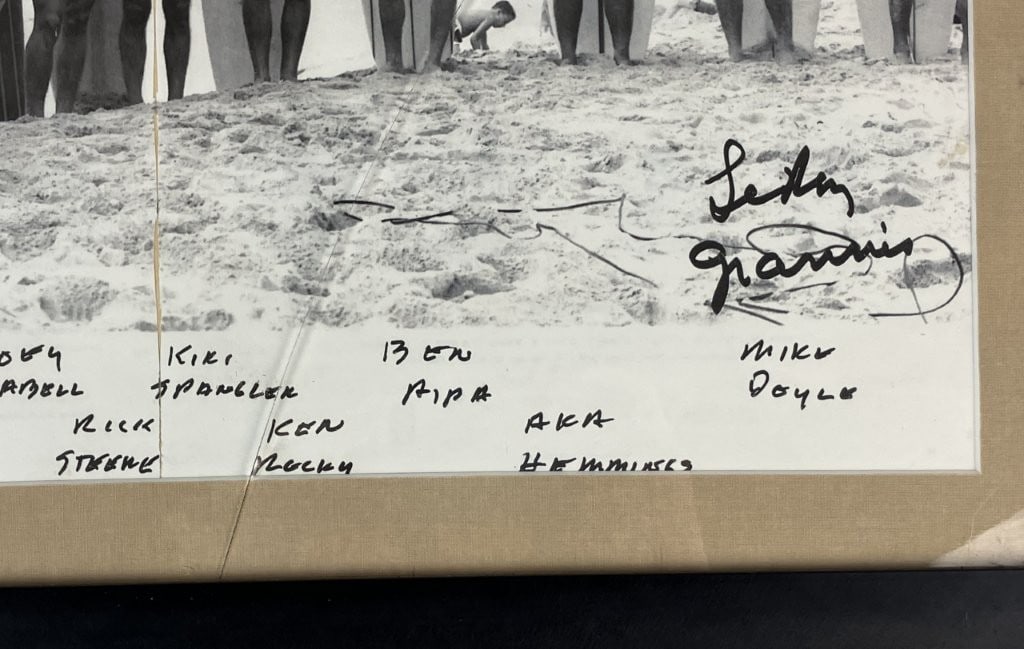 LeRoy
Grannis
OEY
ABELL
KIKI
SPANGLER
BEN
AIPA
MIKE
DOYLE
RICK
STEERE
KEN
ROCKY
AKA
HEMMINGS